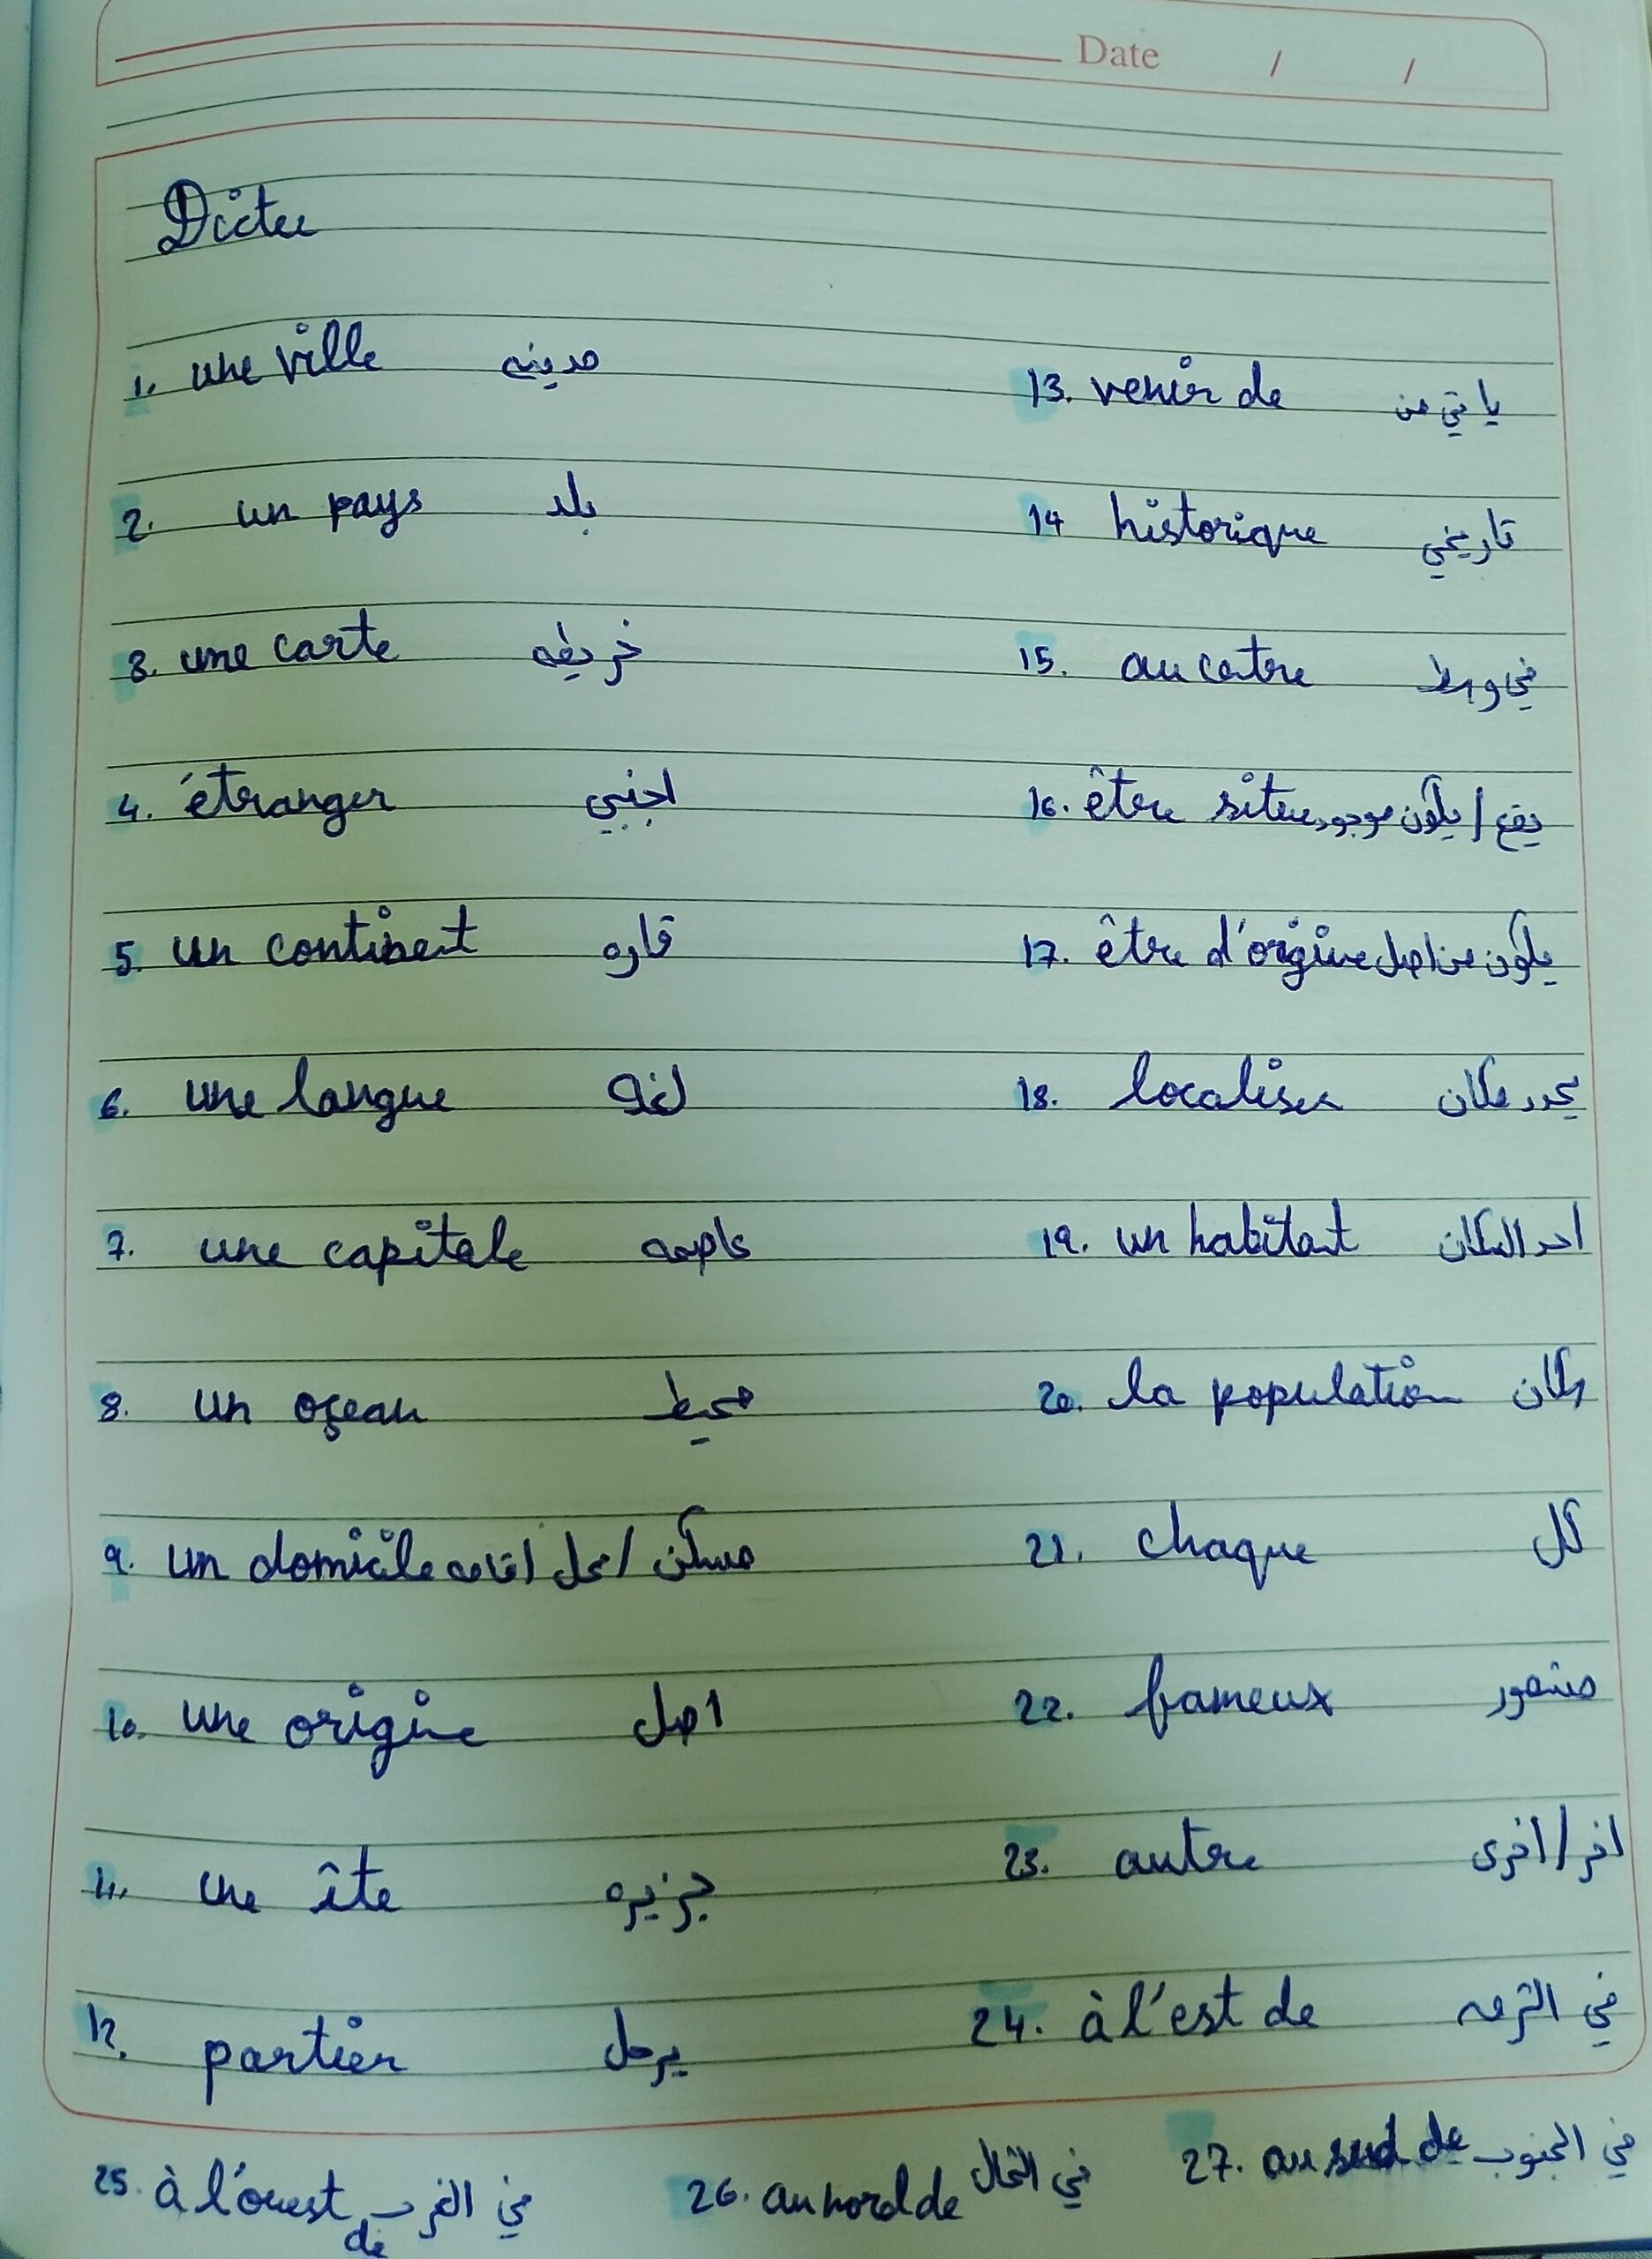 Date / /
Dictee
1. une ville مدينه
2. un pays بلد
3. une carte خريطه
4. étranger اجنبي
5. un continent قاره
6. une langue لغه
7. une capitale عاصمه
8. un oçean محيط
9. un domicile مسكن / محل اقامه
10. une origine اصل
11. une îte جزيره
12. partier يرحل
13. venir de ياتي من
14 historique تاريخي
15. au centre في وسط
16. être situe يقع / يكون موجود
17. être d'origine يكون من اصل
18. localiser يحدد مكان
19. un habitant احد السكان
20. la population سكان
21. chaque كل
22. frameux مشهور
23. autre اخر / اخرى
24. à l'est de في الشرق
25. à l'ouest de في الغرب
26. au nord de في الشمال
27. au sud de في الجنوب